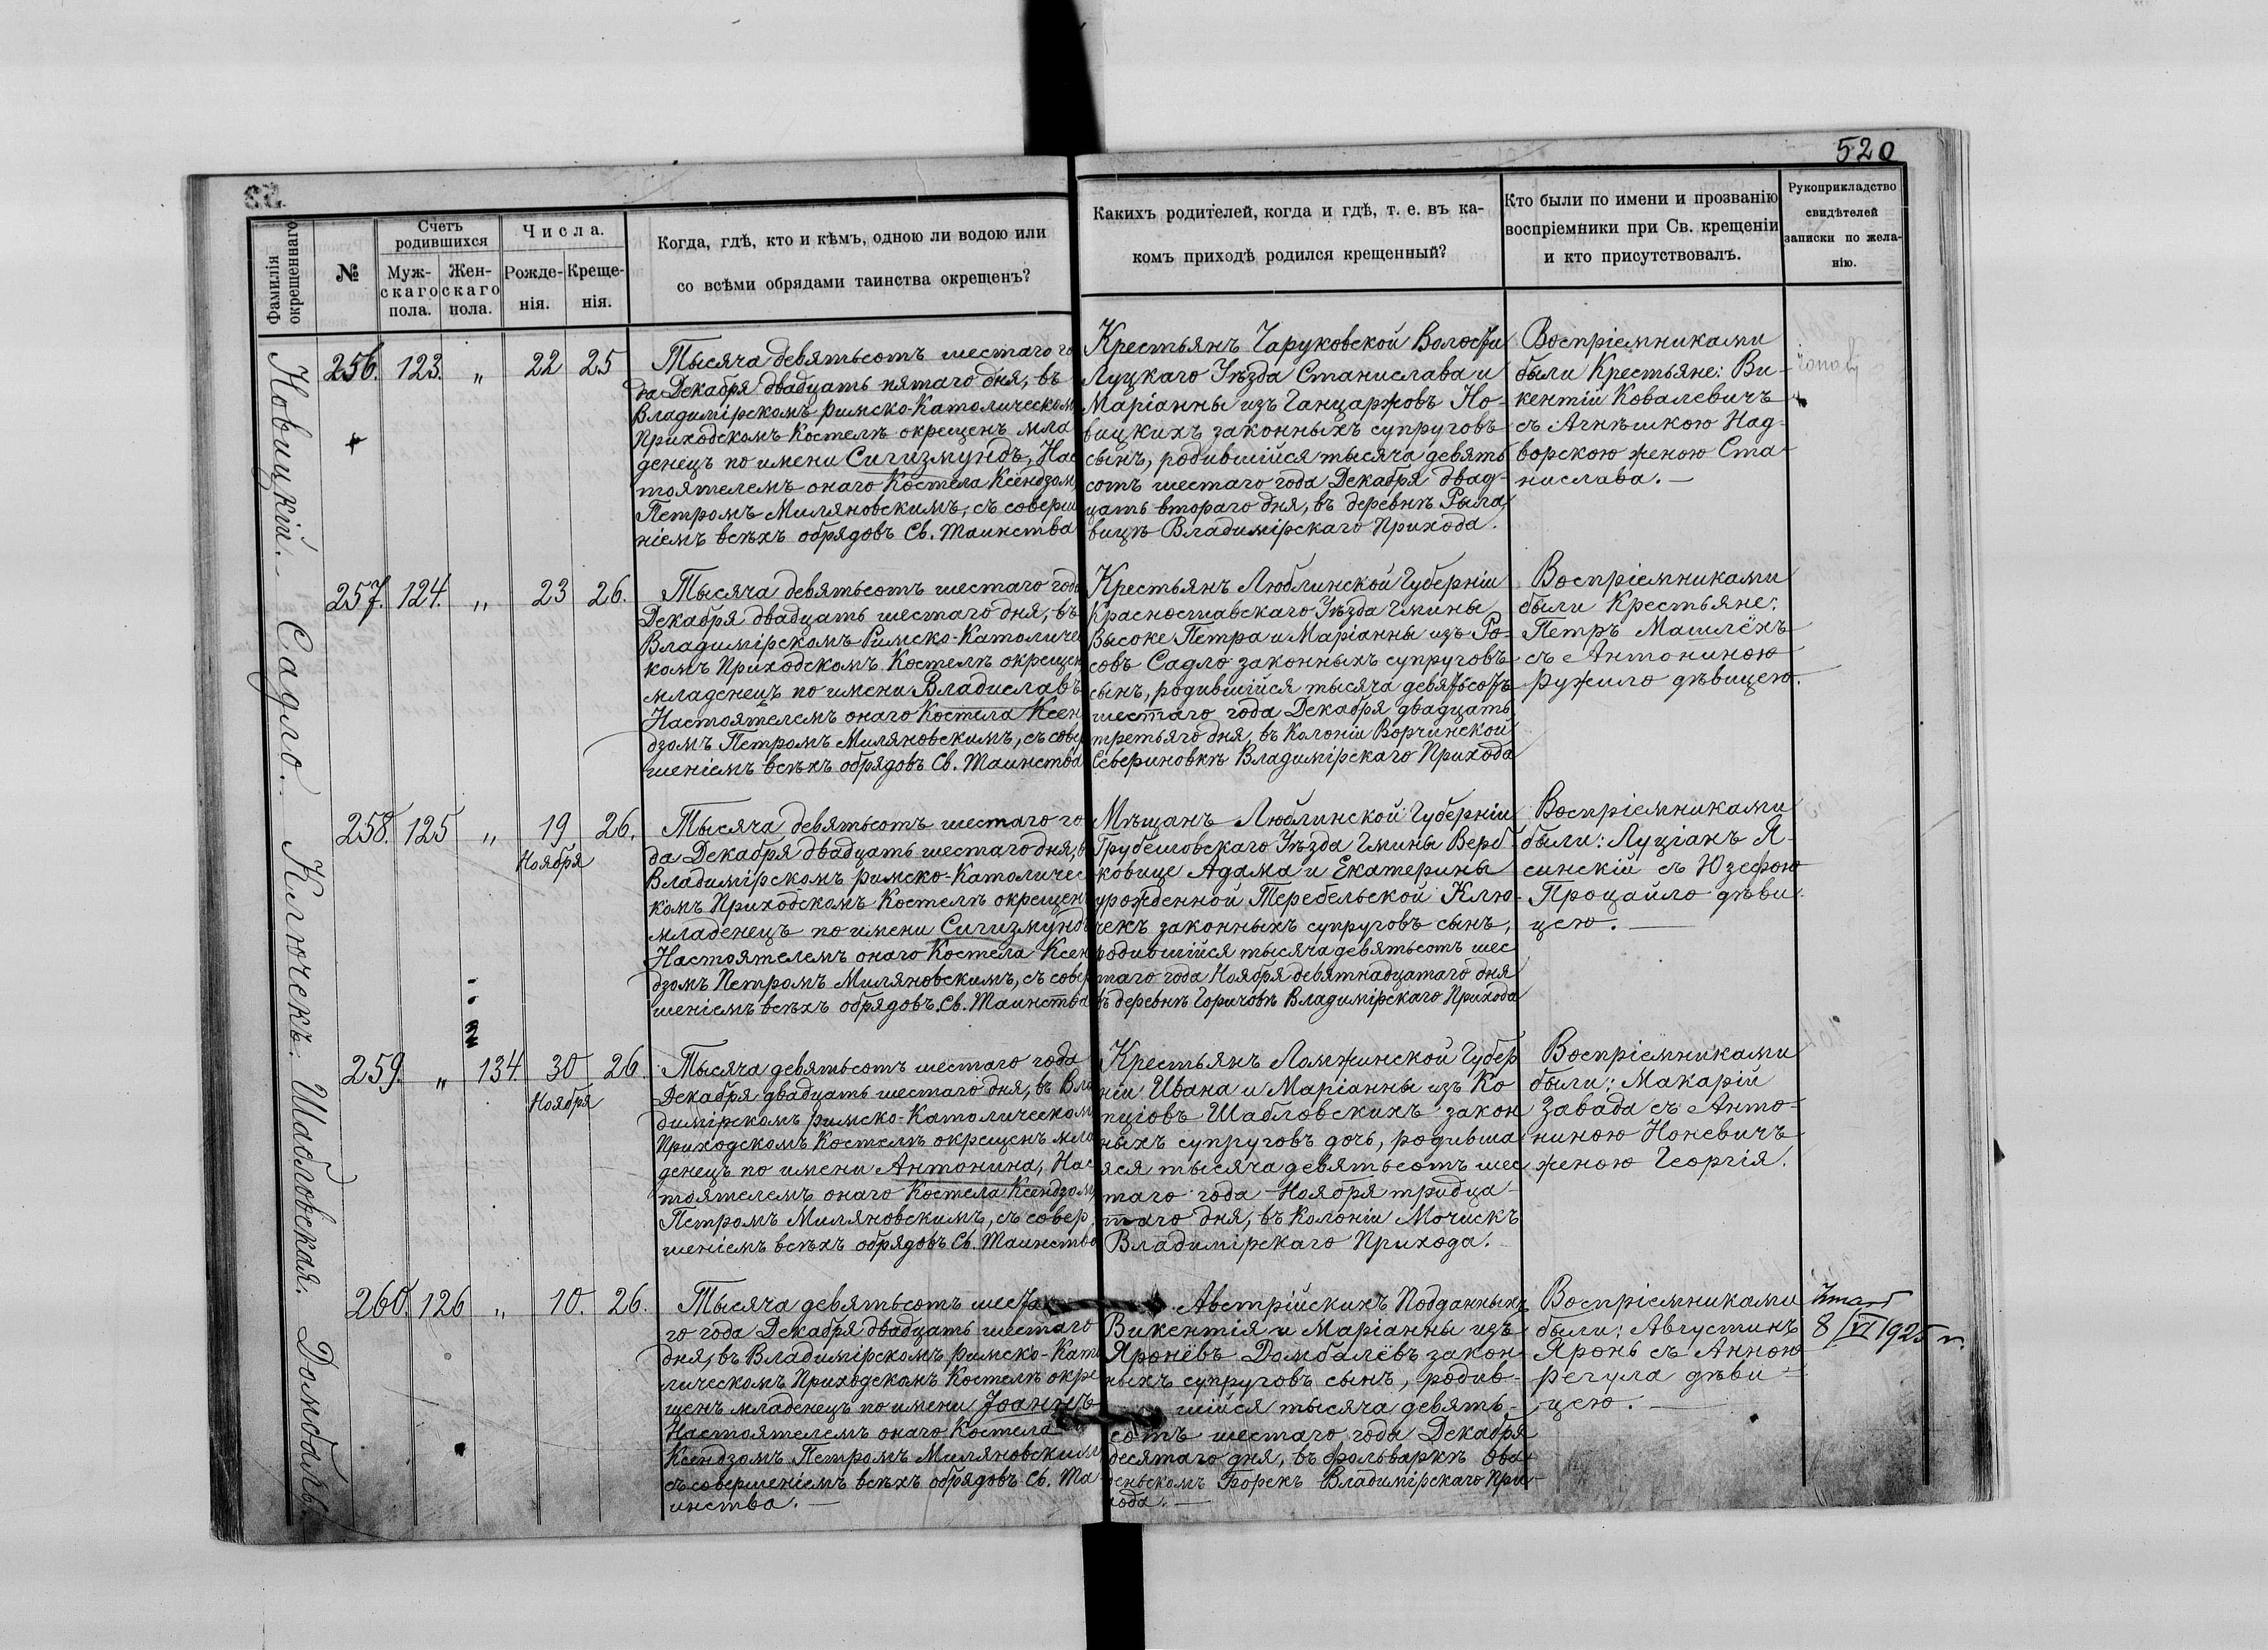 520
Фамилія
окрещеннаго
№
Счетъ
родившихся
Муж-
скаго
пола.
Жен-
скаго
пола.
Числа.
Рожде-
нія.
Креще-
нія.
Когда, гдѣ, кто и кѣмъ, одною ли водою или
со всѣми обрядами таинства окрещенъ?
Какихъ родителей, когда и гдѣ, т. е. въ ка-
комъ приходѣ родился крещенный?
Кто были по имени и прозванію
воспріемники при Св. крещеніи
и кто присутствовалъ.
Рукоприкладство
свидѣтелей
записки по жела-
нію.
Новицкій.
256. 123. „ 22 25
Тысяча девятьсотъ шестаго го
да Декабря двадцать пятаго дня, въ
Владимірскомъ Римско-Католическом
Приходскомъ Костелѣ окрещенъ мла
денецъ по имени Сигизмундъ, Нас
тоятелемъ онаго Костела Ксендзом
Петромъ Миляновскимъ, съ соверше
ніемъ всѣхъ обрядовъ Св. Таинства
Крестьянъ Чаруковской Волости
Луцкаго Уѣзда Станислава и
Маріанны изъ Ганцаржовъ Но-
вицкихъ законныхъ супруговъ
сынъ, родившійся тысяча девять
сотъ шестаго года Декабря двад-
цать втораго дня, въ деревнѣ Рыла
вицѣ Владимірскаго Прихода.
Воспріемниками
были Крестьяне: Ви-
кентій Ковалевичъ
съ Агнѣшкою Над-
ворскою женою Ста
нислава.
Садло.
257. 124. „ 23 26.
Тысяча девятьсотъ шестаго года
Декабря двадцать шестаго дня, въ
Владимірскомъ Римско-Католичес
комъ Приходскомъ Костелѣ окрещен
младенецъ по имени Владиславъ
Настоятелемъ онаго Костела Ксен
дзомъ Петромъ Миляновскимъ, съ совер
шеніемъ всѣхъ обрядовъ Св. Таинства
Крестьянъ Люблинской Губерніи
Красноставскаго Уѣзда Гмины
Высоке Петра и Маріанны изъ Ро-
совъ Садло законныхъ супруговъ
сынъ, родившійся тысяча девятьсотъ
шестаго года Декабря двадцать
третьяго дня, въ Колоніи Ворчинской
Севериновкѣ Владимірскаго Прихода
Воспріемниками
были Крестьяне:
Петръ Машлёхъ
съ Антониною
Ружило дѣвицею.
Ключекъ.
258. 125 „ 19 26.
Ноября
Тысяча девятьсотъ шестаго го
да Декабря двадцать шестаго дня, в
Владимірскомъ Римско-Католичес
комъ Приходскомъ Костелѣ окрещен
младенецъ по имени Сигизмундъ
Настоятелемъ онаго Костела Ксен
дзомъ Петромъ Миляновскимъ, съ совер
шеніемъ всѣхъ обрядовъ Св. Таинства
Мѣщанъ Люблинской Губерніи
Грубешовскаго Уѣзда Гмины Верб
ковице Адама и Екатерины
урожденной Теребельской Клю-
чекъ законныхъ супруговъ сынъ,
родившійся тысяча девятьсотъ шес
таго года Ноября девятнадцатаго дня
въ деревнѣ Горичовѣ Владимірскаго Прихода
Воспріемниками
были: Луціанъ Я-
синскій съ Юзефою
Процайло дѣви
цею.
Шабловская.
259. „ 134. 30 26
Ноября
Тысяча девятьсотъ шестаго года
Декабря двадцать шестаго дня, въ Вла
димірскомъ Римско-Католическом
Приходскомъ Костелѣ окрещенъ мла
денецъ по имени Антонина, Нас
тоятелемъ онаго Костела Ксендзом
Петромъ Миляновскимъ, съ совер
шеніемъ всѣхъ обрядовъ Св. Таинства
Крестьянъ Ломжинской Губер
ніи Ивана и Маріанны изъ Ко
пціовъ Шабловскихъ закон
ныхъ супруговъ дочь, родивша
яся тысяча девятьсотъ шес
таго года Ноября тридца-
таго дня, въ Колоніи Мочискъ
Владимірскаго Прихода.
Воспріемниками
были: Макарій
Завада съ Анто-
ниною Ноневичъ
женою Георгія.
Домбаль.
260. 126 „ 10. 26.
Тысяча девятьсотъ шеста
го года Декабря двадцать шестаго
дня, въ Владимірскомъ Римско-Като
лическомъ Приходскомъ Костелѣ окре
щенъ младенецъ по имени Іоаннъ
Настоятелемъ онаго Костела
Ксендзомъ Петромъ Миляновским
съ совершеніемъ всѣхъ обрядовъ Св. Та
инства.
Австрійскихъ Подданныхъ
Викентія и Маріанны изъ
Яронёвъ Домбалёвъ закон
ныхъ супруговъ сынъ, родив-
шійся тысяча девять-
сотъ шестаго года Декабря
десятаго дня, въ фольваркѣ Ова
деньскомъ Борекъ Владимірскаго При
хода.
Воспріемниками
были: Августинъ
Яронь съ Анною
Регула дѣви-
цею.
8/VI 1925 r.